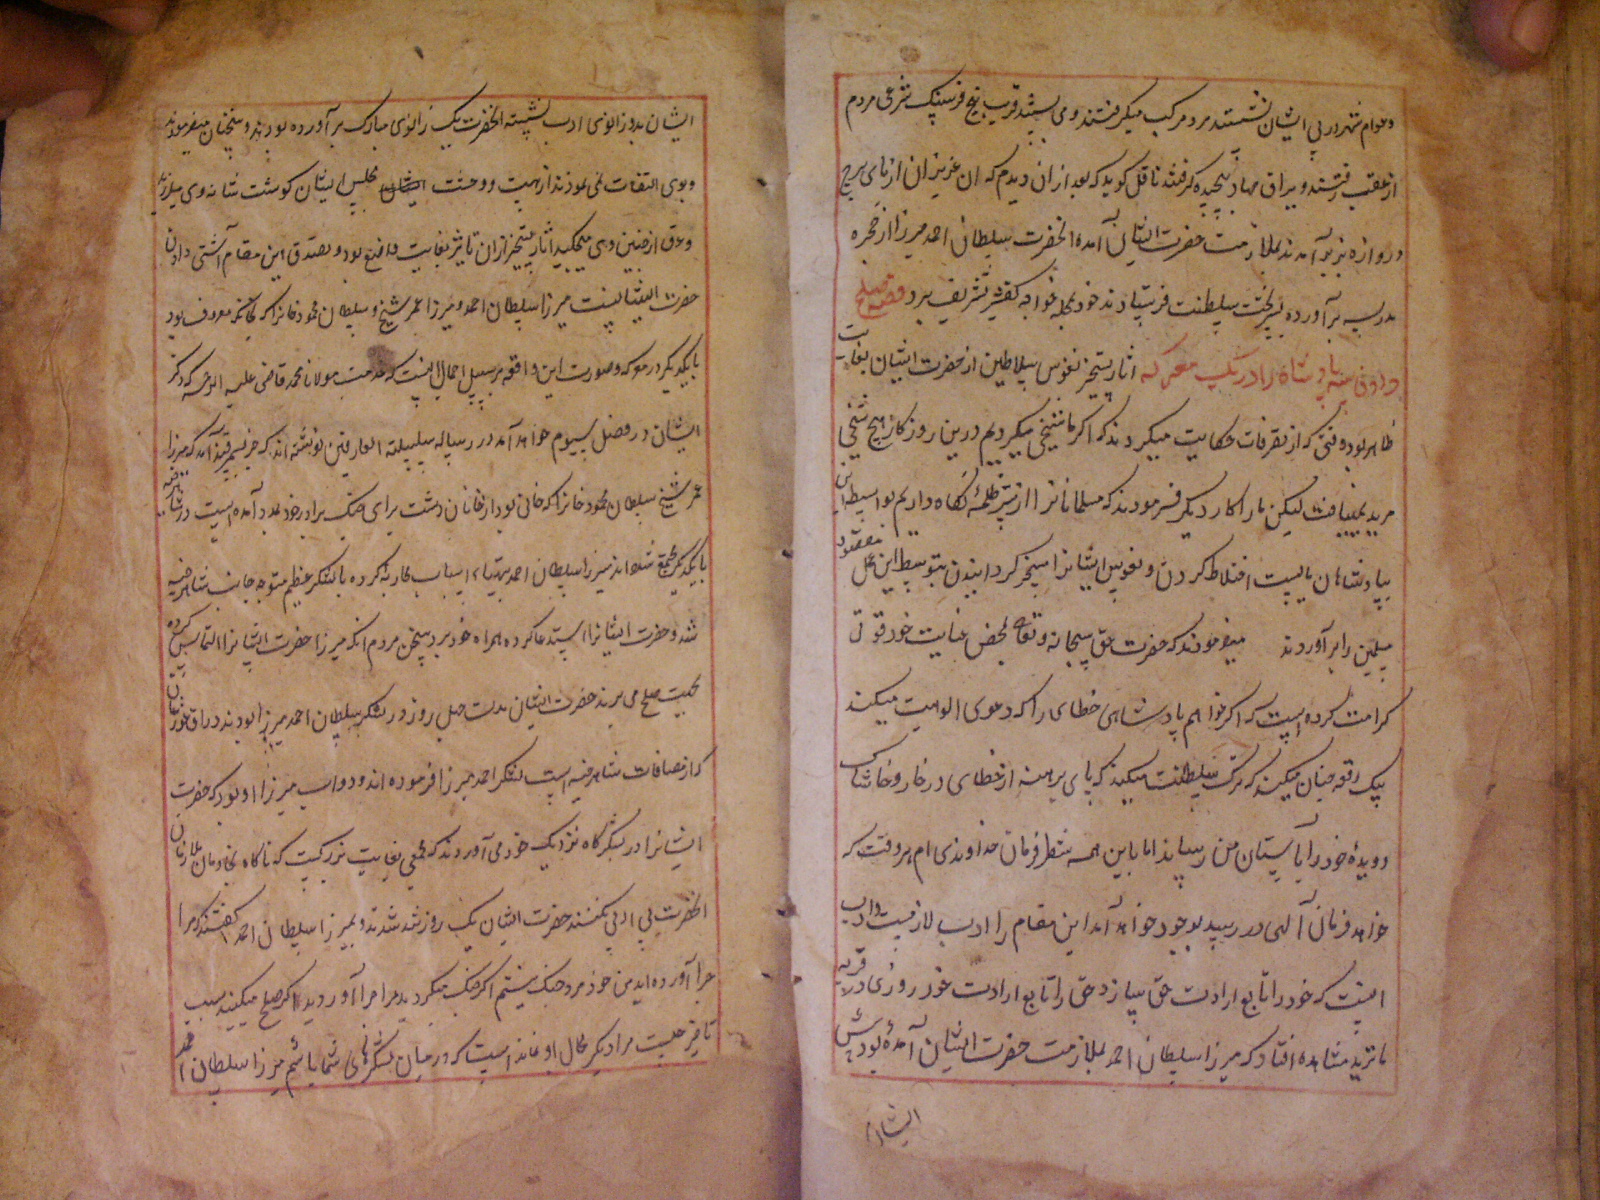 وعوام شهر در پی ایشان نشستند هر دو مرکب میکرفتند و می بستند قریب پنج فرسنک شرعی مردم
از عقب رفتند و یراق بسیار کرفتند ناقل کوید که بعد از ان دیدم که ان عزیزان از بای برج
دروازه بزیر آمدند بملازمت حضرت ایشان آمده انحضرت سلطان احمد میرزا را از حجره
مدرسه برآورده بر تخت سلطنت فرستادند خود بمحله خواجه کفشیر تشریف برد قصه صلح
دادن سه پادشاه را در یک معرکه اثار تسخیر نفوس سلاطین از حضرت ایشان بغایت
ظاهر بود وقتی که از تصرفات حکایت میکردند که اکر ما شیخی میکردیم درین روزکار هیچ شیخی
مرید نمییافت لیکن ما را کار دیکر فرمودند که مسلمانانرا از شر ظلمه نکاه داریم بواسطه این
بپادشاهان بایست اختلاط کردن و نفوس ایشانرا مسخر کردانیدن بتوسط این عمل مقصود
مسلمین را برآوردند میفرمودند که حضرت حق سبحانه وتعالی بمحض عنایت خود قوتی
کرامت کرده است که اکر خواهم پادشاهی خطای را که دعوی الوهیت میکند
بیک رقعه چنان میکنم که ترک سلطنت میکند که پای برهنه از خطای در خار و خاشاک
دویده خود را بآستان من رساند اما با این همه منتظر فرمان خداوندی ام هر وقت که
خواهد فرمان آلهی در رسید بوجود خواهد آمد این مقام را ادب لازمست و ادب
اینست که خود را تابع ارادت حق سازد نه حق را تابع ارادت خود روزی در قریه
ماترید مشاهده افتاد که میرزا سلطان احمد بملازمت حضرت ایشان آمده بود پیش
ایشان
ایشان بدو زانوی ادب نشسته انحضرت یک زانوی مبارک برآورده بودند و سخنان میفرمودند
و بوی التفات نمی نمودند از هیبت و وحشت مجلس ایشان کوشت شانه وی میلرزید
و عرق از جبین وی میچکید اثار تسخیر از ان تاثیر بغایت واضح بود و مصدق این مقام آشتی دادن
حضرت ایشانست میرزا سلطان احمد و میرزا عمر شیخ و سلطان محمود خانرا که بخانیکه معروف بود
با یکدیکر در معرکه و صورت این واقعه بر سبیل اجمال اینست که خدمت مولانا محمد قاضی علیه الرحمه که ذکر
ایشان در فصل سیوم خواهد آمد در رساله سلسلة العارفین نوشته اند که خبر بسمرقند آمد که میرزا
عمر شیخ سلطان محمود خانرا که خانی بود از خانان دشت برای جنک برادر خود بمدد آمده است در شاهرخیه
با یکدیکر مجتمع شده اند میرزا سلطان احمد بتهیاء اسباب محاربه کرده با لشکر عظیم متوجه جانب شاهرخیه
شد و حضرت ایشانرا استدعا کرده همراه خود برد سخن مردم انکه میرزا حضرت ایشانرا التماس کرده
بجهت صلح می برند حضرت ایشان مدت چهل روز در لشکر سلطان احمد میرزا بودند در اق قورغان
که از مضافات شاهرخیه است لشکر احمد میرزا فرموده اند و دواب میرزا او بود که حضرت
ایشانرا در لشکرکاه نزدیک خود می آوردند که مجمعی بغایت بزرکست که ناکاه بخادمان و ملازمان
انحضرت بی ادبی نکنند حضرت ایشان یک روز تند شدند و بمیرزا سلطان احمد کفتند که مرا
چرا آورده اید من خود مرد جنک نیستم اکر جنک میکردید مرا چرا آوردید و اکر صلح میکنید سبب
تاخیر چیست مرا دیکر مجال او نمانده است که در میان لشکرهای شما باشم میرزا سلطان احمد